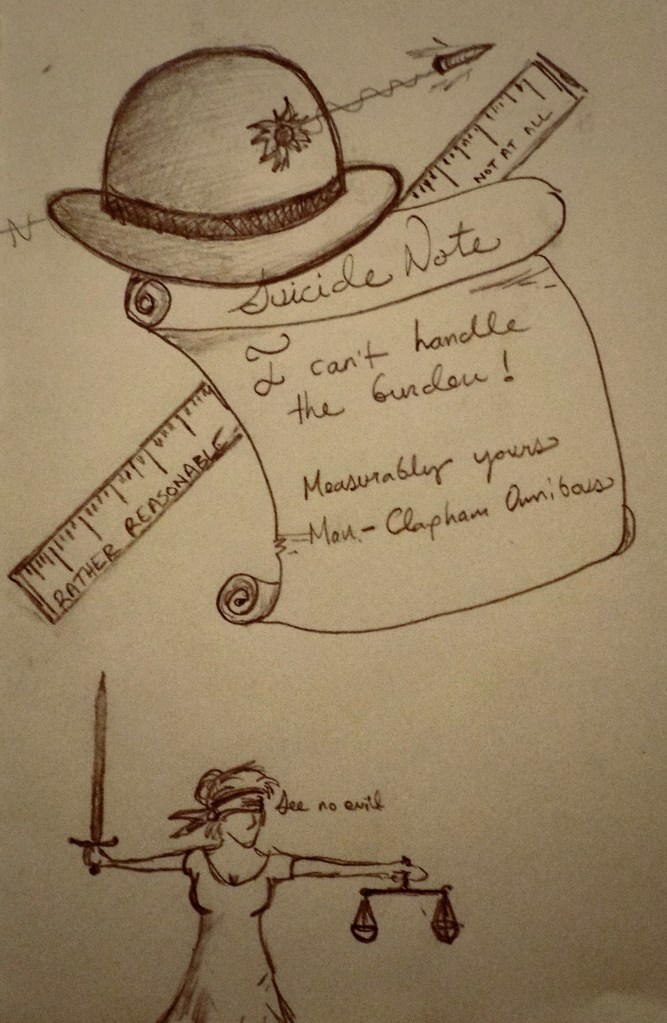 NOT AT ALL
Suicide Note
I can't handle
the burden!
Measurably yours
Man - Clapham Omnibus
RATHER REASONABLE
See no evil